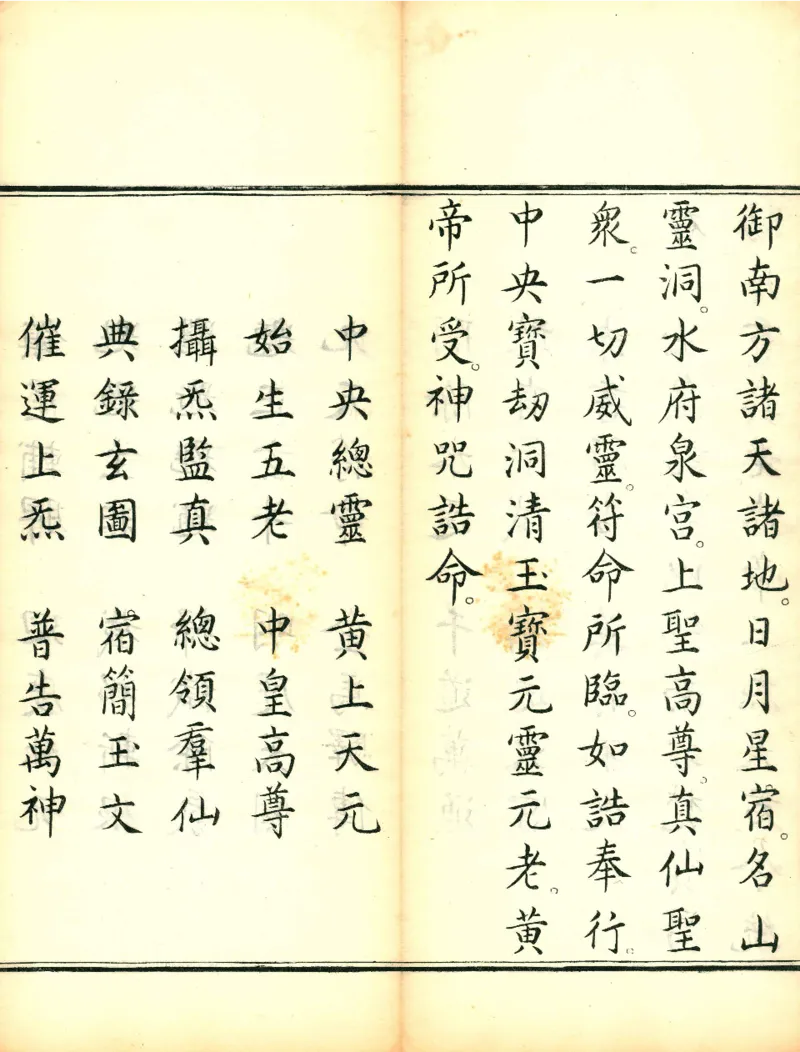 御南方諸天諸地。日月星宿。名山
靈洞。水府泉宮。上聖高尊。真仙聖
衆。一切威靈。符命所臨。如誥奉行。
中央寶劫洞清玉寶元靈元老。黃
帝所受。神咒誥命。
中央總靈　黃上天元
始生五老　中皇高尊
攝炁監真　總領羣仙
典錄玄圖　宿簡玉文
催運上炁　普告萬神